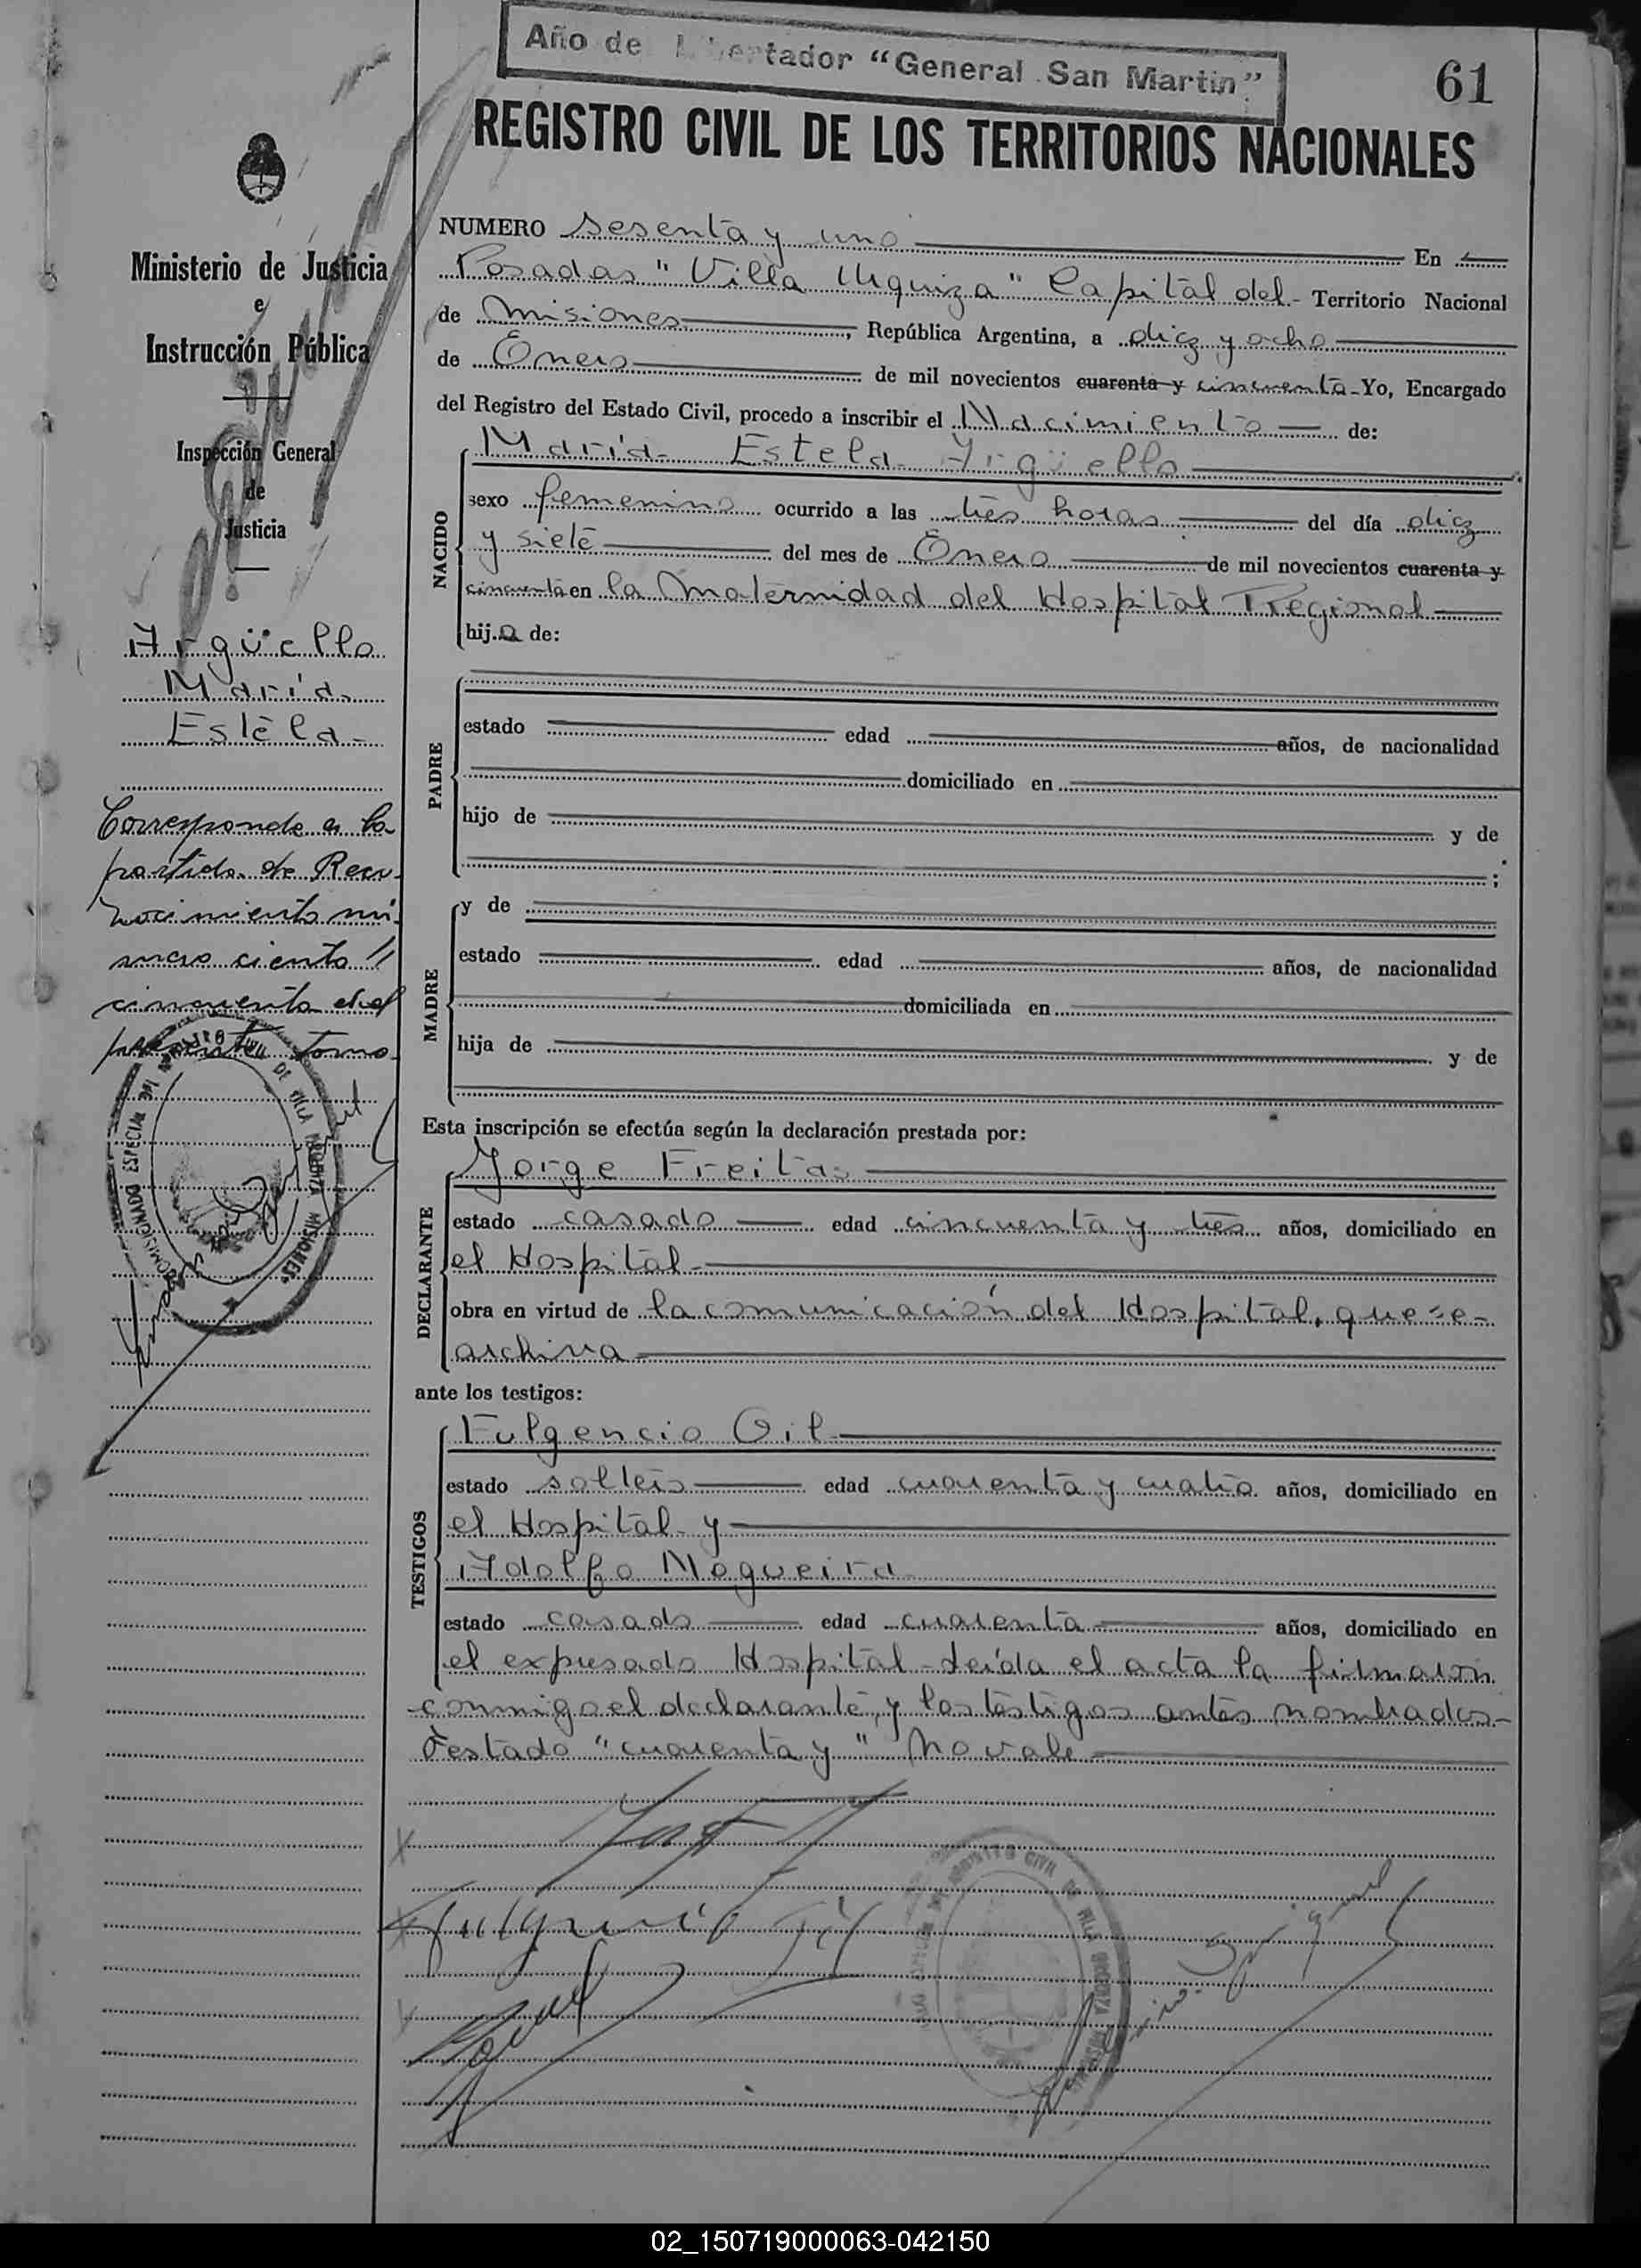 Año de Libertador "General San Martin"
61
REGISTRO CIVIL DE LOS TERRITORIOS NACIONALES
Ministerio de Justicia
e
Instrucción Pública
Inspección General
de
Justicia
Argüello
María
Estela-
Corresponde a la
partida de Reco-
nocimiento nú-
mero ciento
cincuenta del
presente tomo.
NUMERO sesenta y uno En
Posadas "Villa Urquiza" Capital del- Territorio Nacional
de Misiones, República Argentina, a diez y ocho
de Enero de mil novecientos cuarenta y cincuenta-Yo, Encargado
del Registro del Estado Civil, procedo a inscribir el Nacimiento de:
María Estela Argüello
NACIDO
sexo femenino ocurrido a las tres horas del día diez
y siete del mes de Enero de mil novecientos cuarenta y
cincuenta en la Maternidad del Hospital Regional
hija de:
PADRE
estado edad años, de nacionalidad
domiciliado en
hijo de y de
;
MADRE
y de
estado edad años, de nacionalidad
domiciliada en
hija de y de
Esta inscripción se efectúa según la declaración prestada por:
DECLARANTE
Jorge Freitas
estado casado edad cincuenta y tres años, domiciliado en
el Hospital-
obra en virtud de la comunicación del Hospital, que se-
archiva
ante los testigos:
TESTIGOS
Fulgencio Gil
estado soltero edad cuarenta y cuatro años, domiciliado en
el Hospital y
Adolfo Nogueira
estado casado edad cuarenta años, domiciliado en
el expresado Hospital-Leída el acta la firmaron
conmigo el declarante, y los testigos antes nombrados-
Testado "cuarenta y" No vale
Fulgencio Gil
COMISIONADO ESPECIAL DEL REGISTRO CIVIL DE VILLA URQUIZA MISIONES
02_150719000063-042150